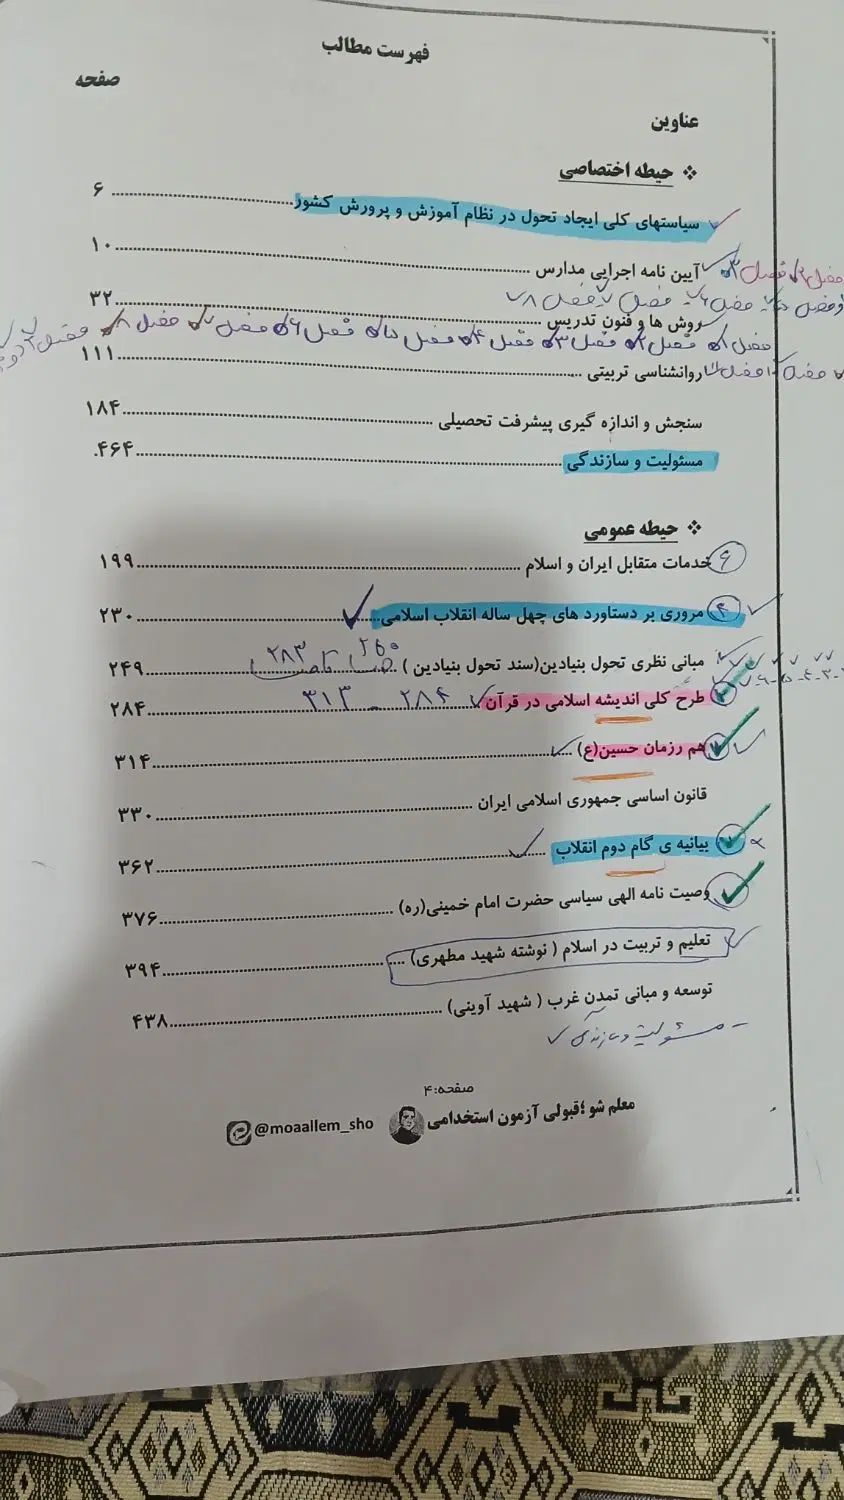 فهرست مطالب
صفحه
عناوین
❖ حیطه اختصاصی
سیاستهای کلی ایجاد تحول در نظام آموزش و پرورش کشور ۶
آیین نامه اجرایی مدارس ۱۰
فصل ۶ فصل ۷ فصل ۸
روش ها و فنون تدریس ۳۲
فصل ۱ فصل ۲ فصل ۳ فصل ۴ فصل ۵ فصل ۶ فصل ۷ فصل ۸
روانشناسی تربیتی ۱۱۱
سنجش و اندازه گیری پیشرفت تحصیلی ۱۸۴
مسئولیت و سازندگی ۴۶۴
❖ حیطه عمومی
۶ خدمات متقابل ایران و اسلام ۱۹۹
مروری بر دستاورد های چهل ساله انقلاب اسلامی ۲۳۰
مبانی نظری تحول بنیادین(سند تحول بنیادین ) ۲۴۹
طرح کلی اندیشه اسلامی در قرآن ۲۸۴ - ۳۱۳ ۲۸۴
هم رزمان حسین(ع) ۳۱۴
قانون اساسی جمهوری اسلامی ایران ۳۳۰
بیانیه ی گام دوم انقلاب ۳۶۲
وصیت نامه الهی سیاسی حضرت امام خمینی(ره) ۳۷۶
تعلیم و تربیت در اسلام ( نوشته شهید مطهری) ۳۹۴
توسعه و مبانی تمدن غرب ( شهید آوینی) ۴۳۸
- مسئولیت و سازندگی
صفحه:۴
معلم شو ؛قبولی آزمون استخدامی @moaallem_sho